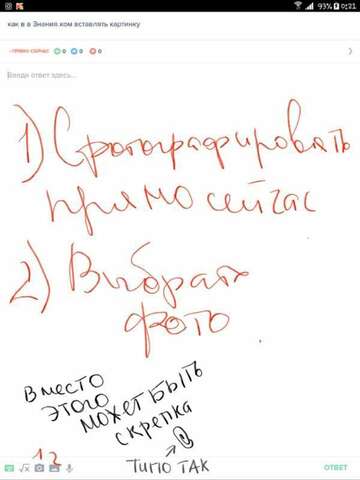 93% 0:21
как в в Знания.ком вставлять картинку
•ПРЯМО СЕЙЧАС 0 0 0
Введи ответ здесь...
1) Сфотографировать
прямо сейчас
2) Выбрать
фото
Вместо
этого
может быть
скрепка
типо так
1 2
ОТВЕТ